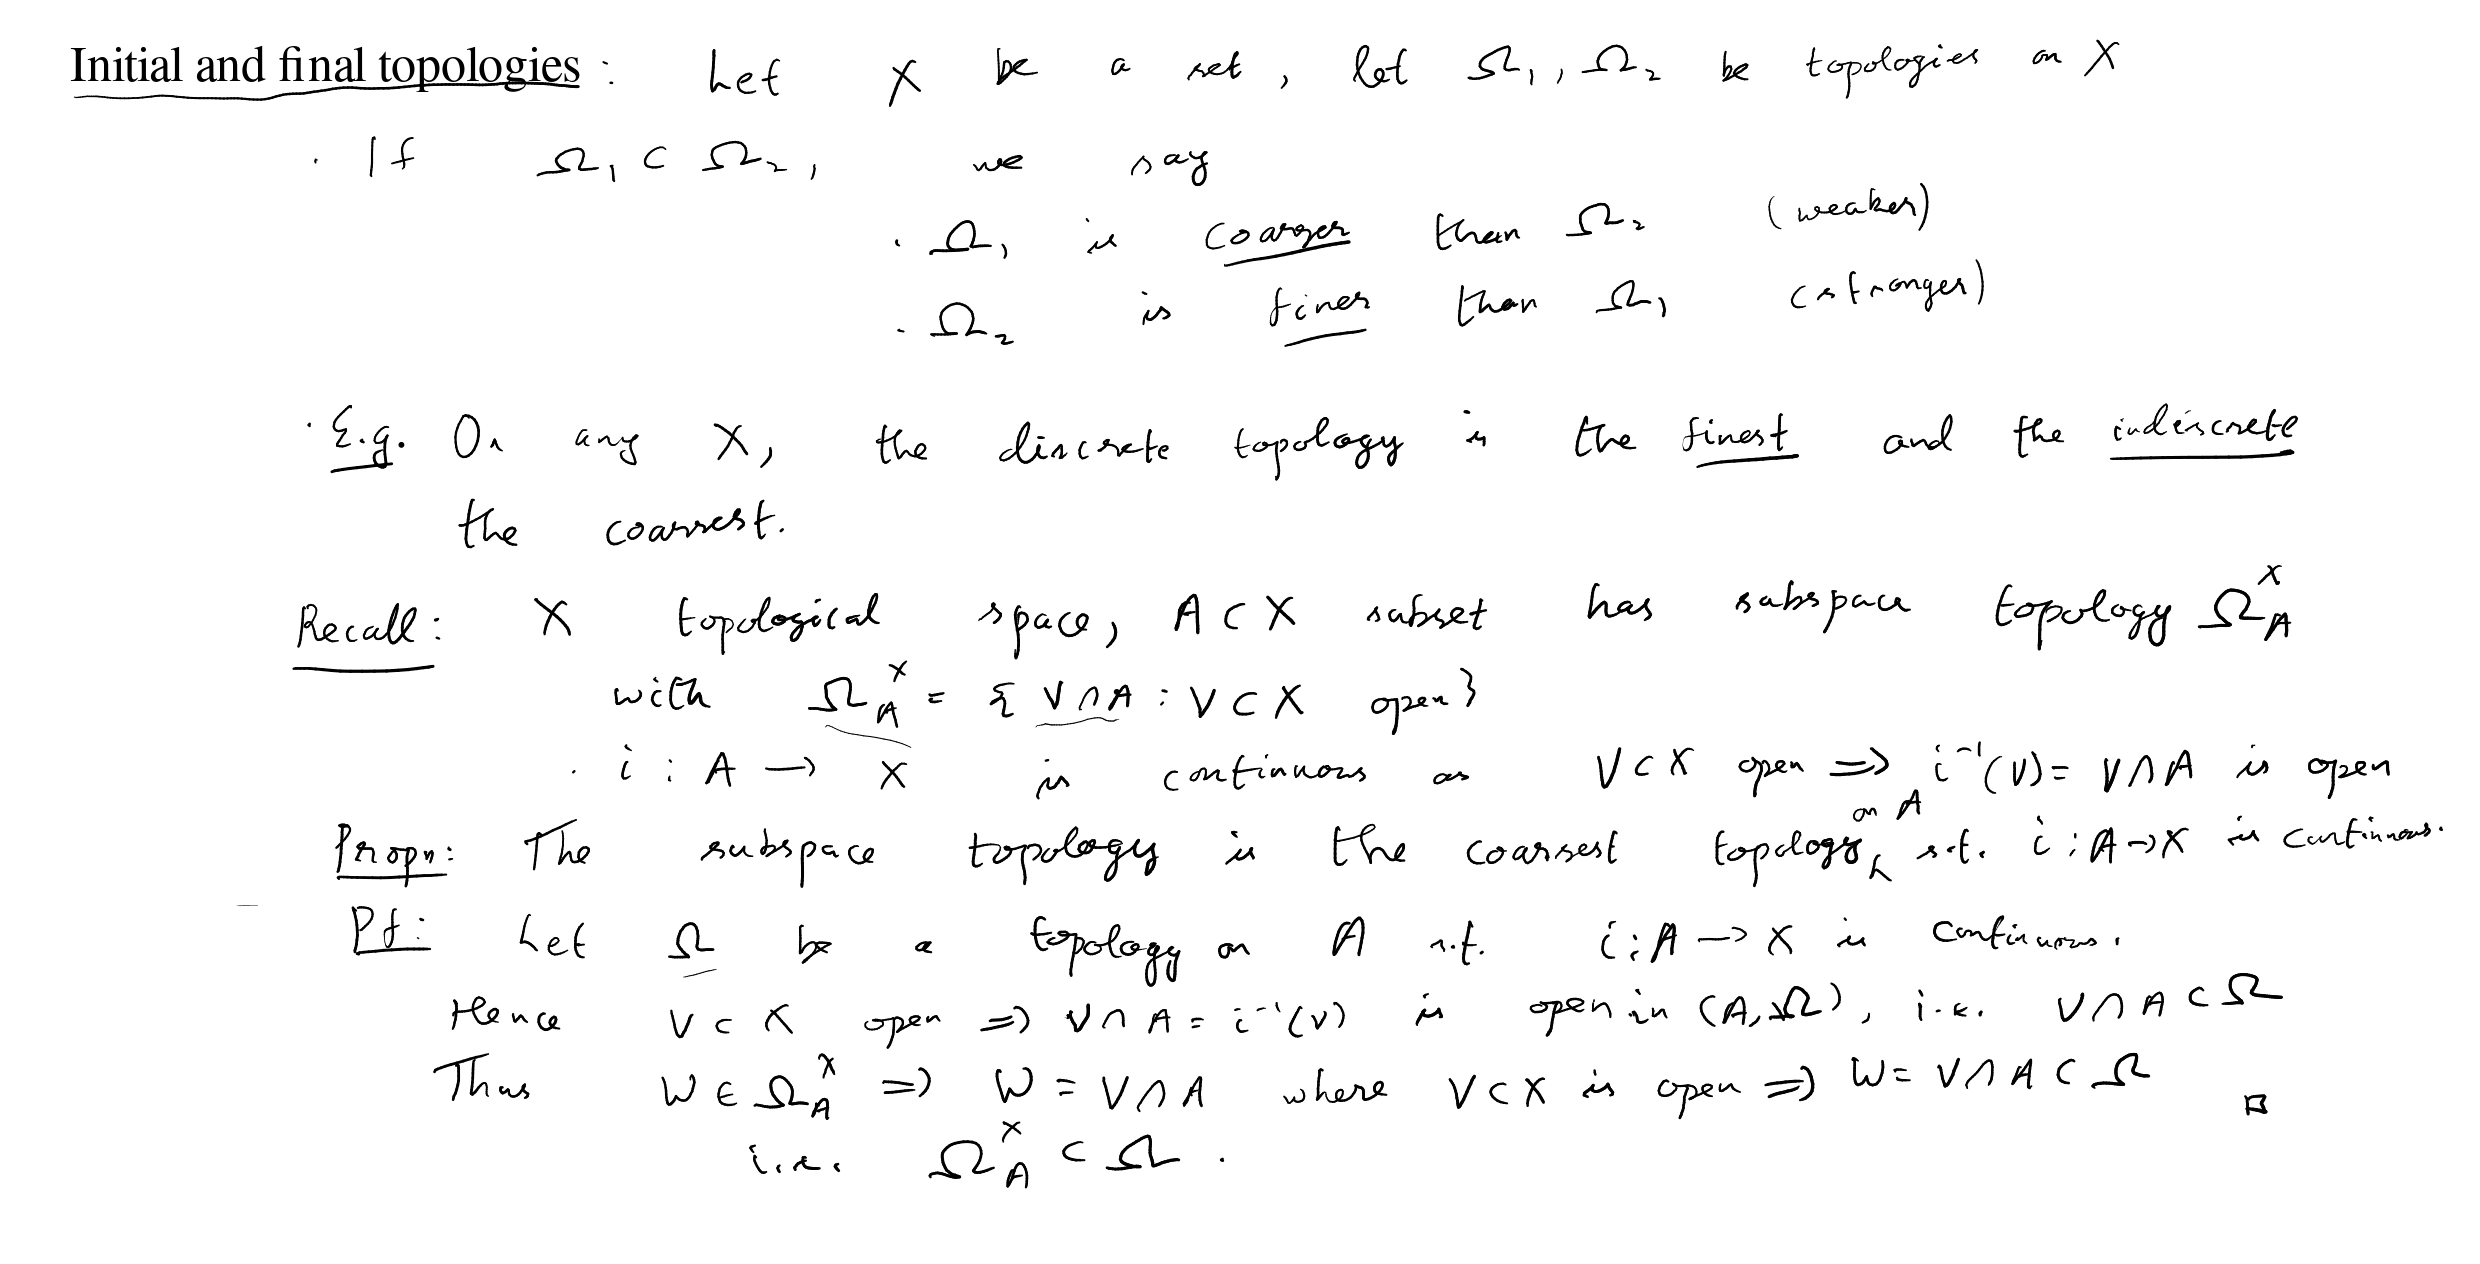 Initial and final topologies : Let X be a set, let Ω₁, Ω₂ be topologies on X
· If Ω₁ ⊂ Ω₂, we say
· Ω₁ is coarser than Ω₂ (weaker)
· Ω₂ is finer than Ω₁ (stronger)
· E.g. On any X, the discrete topology is the finest and the indiscrete
the coarsest.
Recall: X topological space, A ⊂ X subset has subspace topology Ω_A^X
with Ω_A^X = { V ∩ A : V ⊂ X open }
· i : A → X is continuous as V ⊂ X open ⟹ i⁻¹(V) = V ∩ A is open
Propn: The subspace topology is the coarsest topology on A s.t. i : A → X is continuous.
Pf: Let Ω be a topology on A s.t. i : A → X is continuous.
Hence V ⊂ X open ⟹ V ∩ A = i⁻¹(V) is open in (A, Ω), i.e. V ∩ A ⊂ Ω
Thus W ∈ Ω_A^X ⟹ W = V ∩ A where V ⊂ X is open ⟹ W = V ∩ A ⊂ Ω □
i.e. Ω_A^X ⊂ Ω .